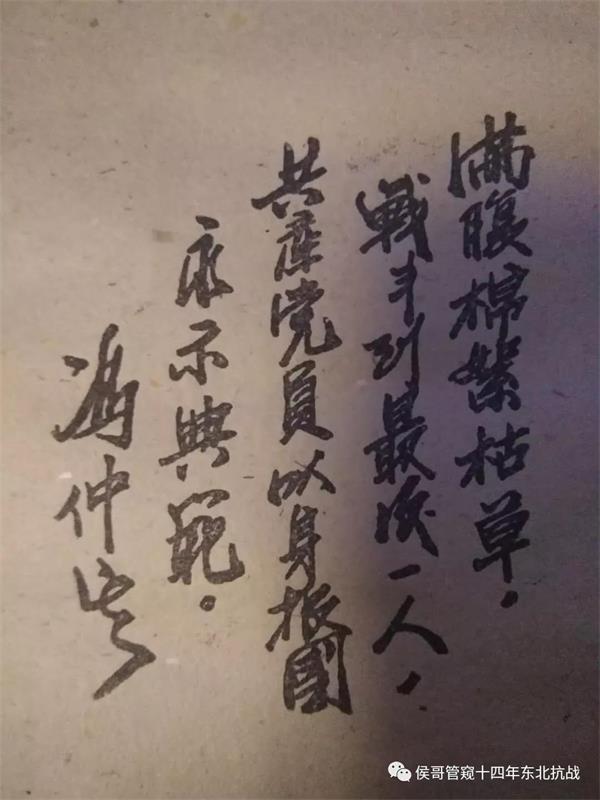 满腹棉絮枯草，
戰斗到最后一人，
共産党員以身报國
永示典範。
馮仲云
侯哥管窥十四年东北抗战